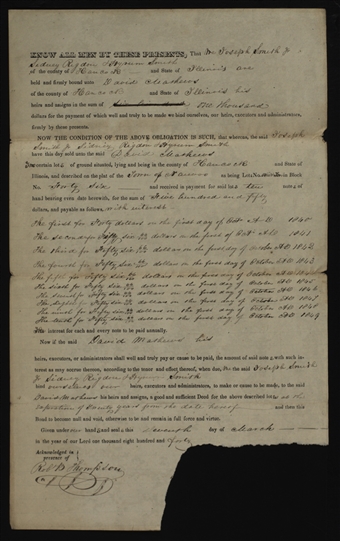 KNOW ALL MEN BY THESE PRESENTS, That We Joseph Smith Jr
Sidney Rigdon & Hyrum Smith
of the county of Hancock and State of Illinois are
held and firmly bound unto David Mathews
of the county of Hancock and State of Illinois his
heirs and assigns in the sum of two thousand
dollars for the payment of which well and truly to be made we bind ourselves, our heirs, executors and administrators,
firmly by these presents.
NOW THE CONDITION OF THE ABOVE OBLIGATION IS SUCH, that whereas, the said Joseph
Smith Jr Sidney Rigdon & Hyrum Smith
have this day sold unto the said David Mathews
certain lot of ground situated, lying and being in the county of Hancock and State of
Illinois, and described on the plat of the Town of Nauvoo as being Lot No. in Block
No. Forty Six and received in payment for said lot ten notes of
hand bearing even date herewith, for the sum of Five hundred and fifty
dollars, and payable as follows, with interest
The first for Fifty dollars on the first day of Oct A.D. 1840
The Second for Fifty five dollars on the first of Oct AD 1841
The third for Fifty five dollars on the first day of October AD 1842
The fourth for Fifty five dollars on the first day of October AD 1843
The fifth for Fifty five dollars on the first day of October AD 1844
The sixth for Fifty five dollars on the first day of October AD 1845
The seventh for Fifty five dollars on the first day of October AD 1846
The eighth for Fifty five dollars on the first day of October AD 1847
The ninth for Fifty five dollars on the first day of October AD 1848
The tenth for Fifty five dollars on the first day of October AD 1849
The interest for each and every note to be paid annually.
Now if the said David Mathews his
heirs, executors, or administrators shall well and truly pay or cause to be paid, the amount of said notes with such in-
terest as may accrue thereon, according to the tenor and effect thereof, when due, the said Joseph Smith
Jr Sidney Rigdon & Hyrum Smith
heirs, executors and administrators, to make or cause to be made, to the said
David Mathews his heirs and assigns, a good and sufficient Deed for the above described lot at the
expiration of Twenty years from the date hereof and then this
Bond to become null and void, otherwise to be and remain in full force and virtue.
Given under our hands and seals this Seventh day of March
in the year of our Lord one thousand eight hundred and forty
Acknowledged in
presence of
Robt B Thompson